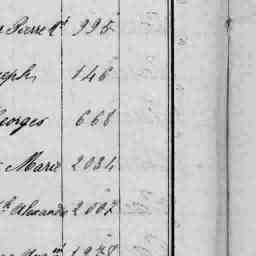 Pierre 995
seph, 146
eorges 668
Marie 2034
Alexandre 2007
1978